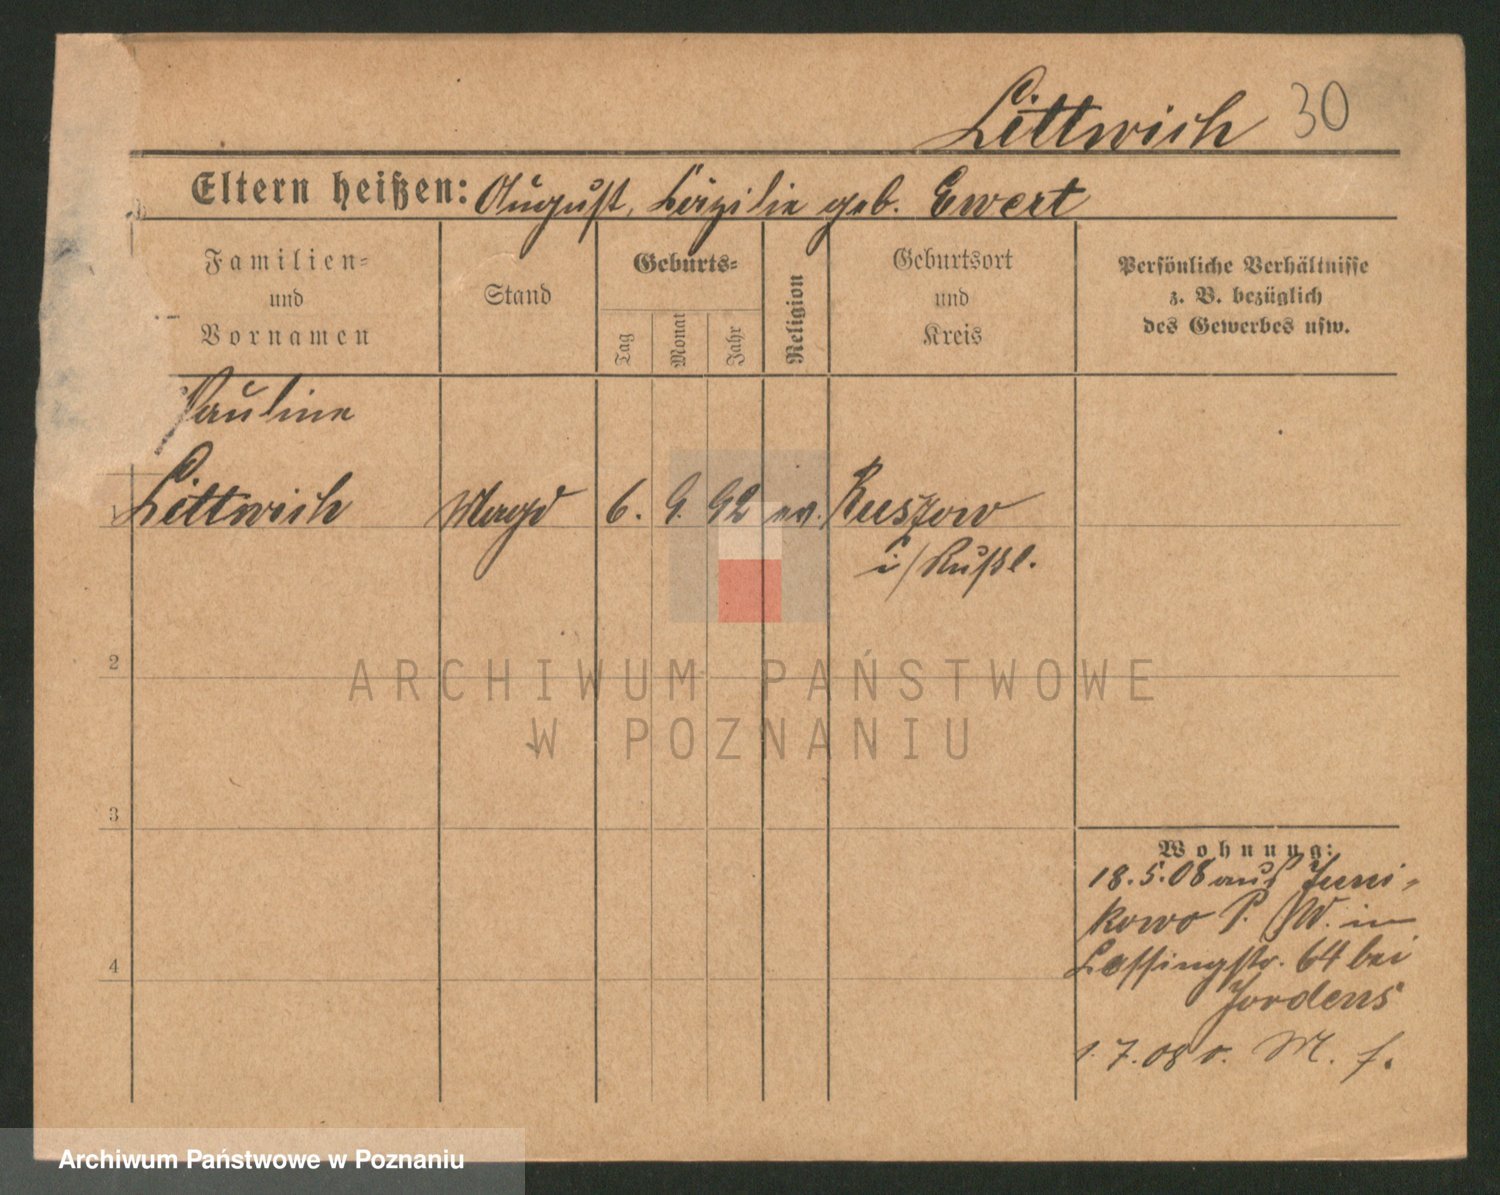 Littwich 30
Eltern heißen: August, Cäzilie geb. Ewert
Familien-
und
Vornamen
Stand
Geburts-
Tag
Monat
Jahr
Religion
Geburtsort
und
Kreis
Persönliche Verhältnisse
z. B. bezüglich
des Gewerbes usw.
Pauline
Littwich Magd 6. 9. 92 ev. Ruszow
i/Rußl.
2
ARCHIWUM PAŃSTWOWE
W POZNANIU
3
Wohnung:
18.5.08 aus Juni-
kowo P. W. in
4
Lessingstr. 64 bei
Jordens
1.7.08 v. M. f.
Archiwum Państwowe w Poznaniu